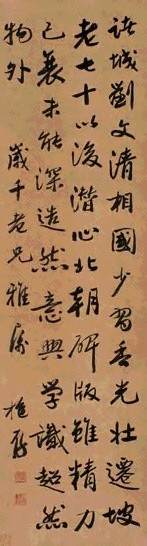 诸城刘文清相国少习香光壮迁坡
老七十以后潜心北朝碑版虽精力
已衰未能深造然意兴学识超然
物外 岁千老兄雅属 稚存